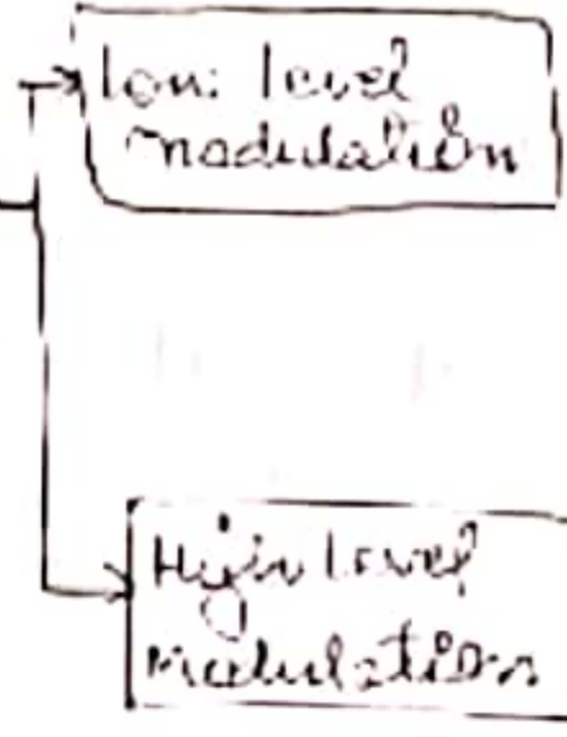 Low level
modulation
High level
modulation